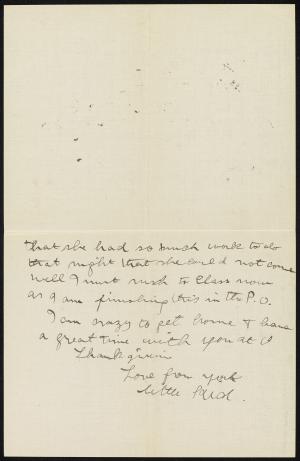 that she had so much work to do
that night that she could not come
Well I must rush to Class now
as I am finishing this in the P.O.
I am crazy to get home & have
a great time with you at
Thanksgivin
Love from your
little